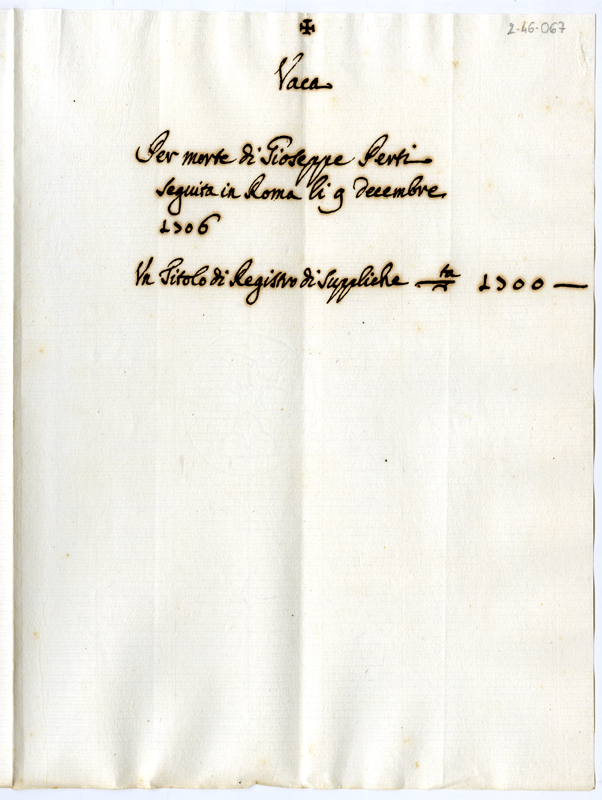 ✠
2-46-067
Vaca
Per morte di Gioseppe Perti
seguita in Roma li 9 Decembre
1706
Un Titolo di Registro di Suppliche 1700 —